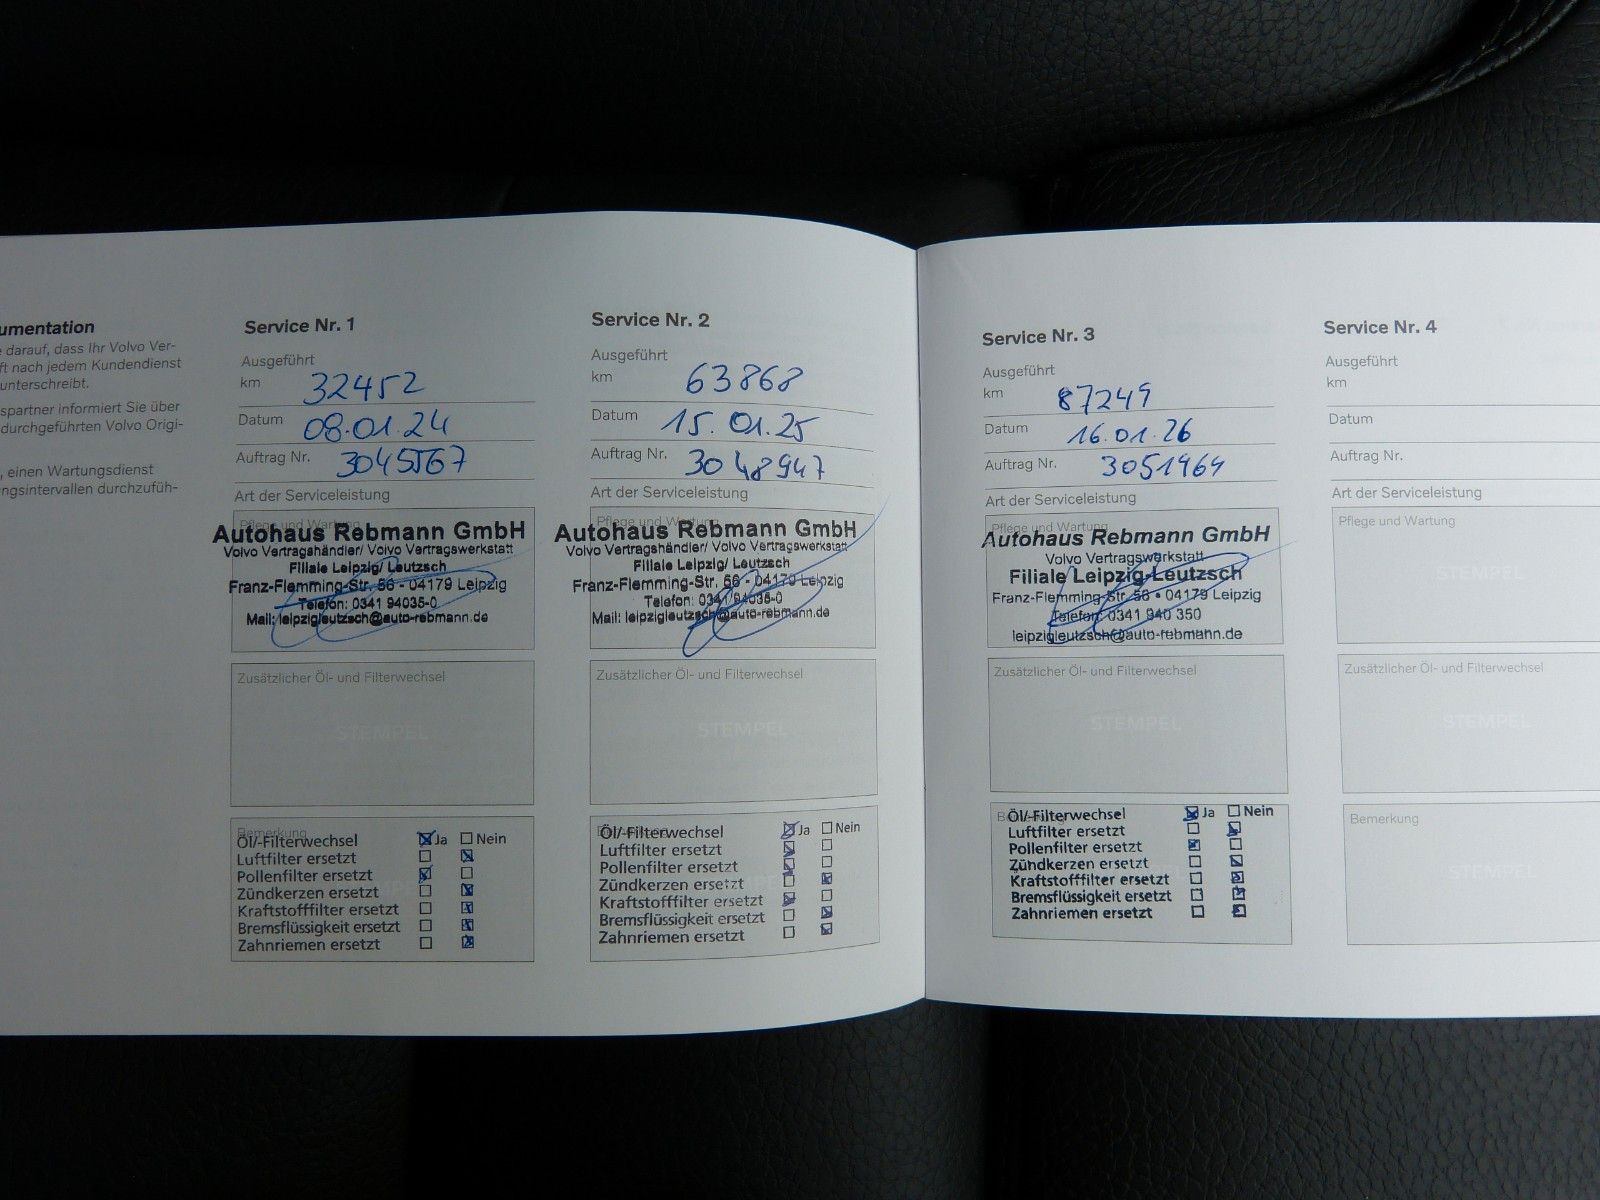 umentation
e darauf, dass Ihr Volvo Ver-
ft nach jedem Kundendienst
unterschreibt.
spartner informiert Sie über
durchgeführten Volvo Origi-
, einen Wartungsdienst
ngsintervallen durchzufüh-
Service Nr. 1
Ausgeführt
km 32452
Datum 08.01.24
Auftrag Nr. 3045567
Art der Serviceleistung
Pflege und Wartung
Autohaus Rebmann GmbH
Volvo Vertragshändler/ Volvo Vertragswerkstatt
Filiale Leipzig/ Leutzsch
Franz-Flemming-Str. 56 - 04179 Leipzig
Telefon: 0341 94035-0
Mail: leipzigleutzsch@auto-rebmann.de
Zusätzlicher Öl- und Filterwechsel
STEMPEL
Bemerkung
Öl/-Filterwechsel Ja Nein
Luftfilter ersetzt
Pollenfilter ersetzt
Zündkerzen ersetzt
Kraftstofffilter ersetzt
Bremsflüssigkeit ersetzt
Zahnriemen ersetzt
Service Nr. 2
Ausgeführt
km 63868
Datum 15.01.25
Auftrag Nr. 3048947
Art der Serviceleistung
Pflege und Wartung
Autohaus Rebmann GmbH
Volvo Vertragshändler/ Volvo Vertragswerkstatt
Filiale Leipzig/ Leutzsch
Franz-Flemming-Str. 56 - 04179 Leipzig
Telefon: 0341 94035-0
Mail: leipzigleutzsch@auto-rebmann.de
Zusätzlicher Öl- und Filterwechsel
STEMPEL
Öl/-Filterwechsel Ja Nein
Luftfilter ersetzt
Pollenfilter ersetzt
Zündkerzen ersetzt
Kraftstofffilter ersetzt
Bremsflüssigkeit ersetzt
Zahnriemen ersetzt
Service Nr. 3
Ausgeführt
km 87249
Datum 16.01.26
Auftrag Nr. 3051964
Art der Serviceleistung
Pflege und Wartung
Autohaus Rebmann GmbH
Volvo Vertragswerkstatt
Filiale Leipzig-Leutzsch
Franz-Flemming-Str. 56 • 04179 Leipzig
Telefon: 0341 940 350
leipzigleutzsch@auto-rebmann.de
Zusätzlicher Öl- und Filterwechsel
STEMPEL
Öl/-Filterwechsel Ja Nein
Luftfilter ersetzt
Pollenfilter ersetzt
Zündkerzen ersetzt
Kraftstofffilter ersetzt
Bremsflüssigkeit ersetzt
Zahnriemen ersetzt
Service Nr. 4
Ausgeführt
km
Datum
Auftrag Nr.
Art der Serviceleistung
Pflege und Wartung
STEMPEL
Zusätzlicher Öl- und Filterwechsel
STEMPEL
Bemerkung
STEMPEL